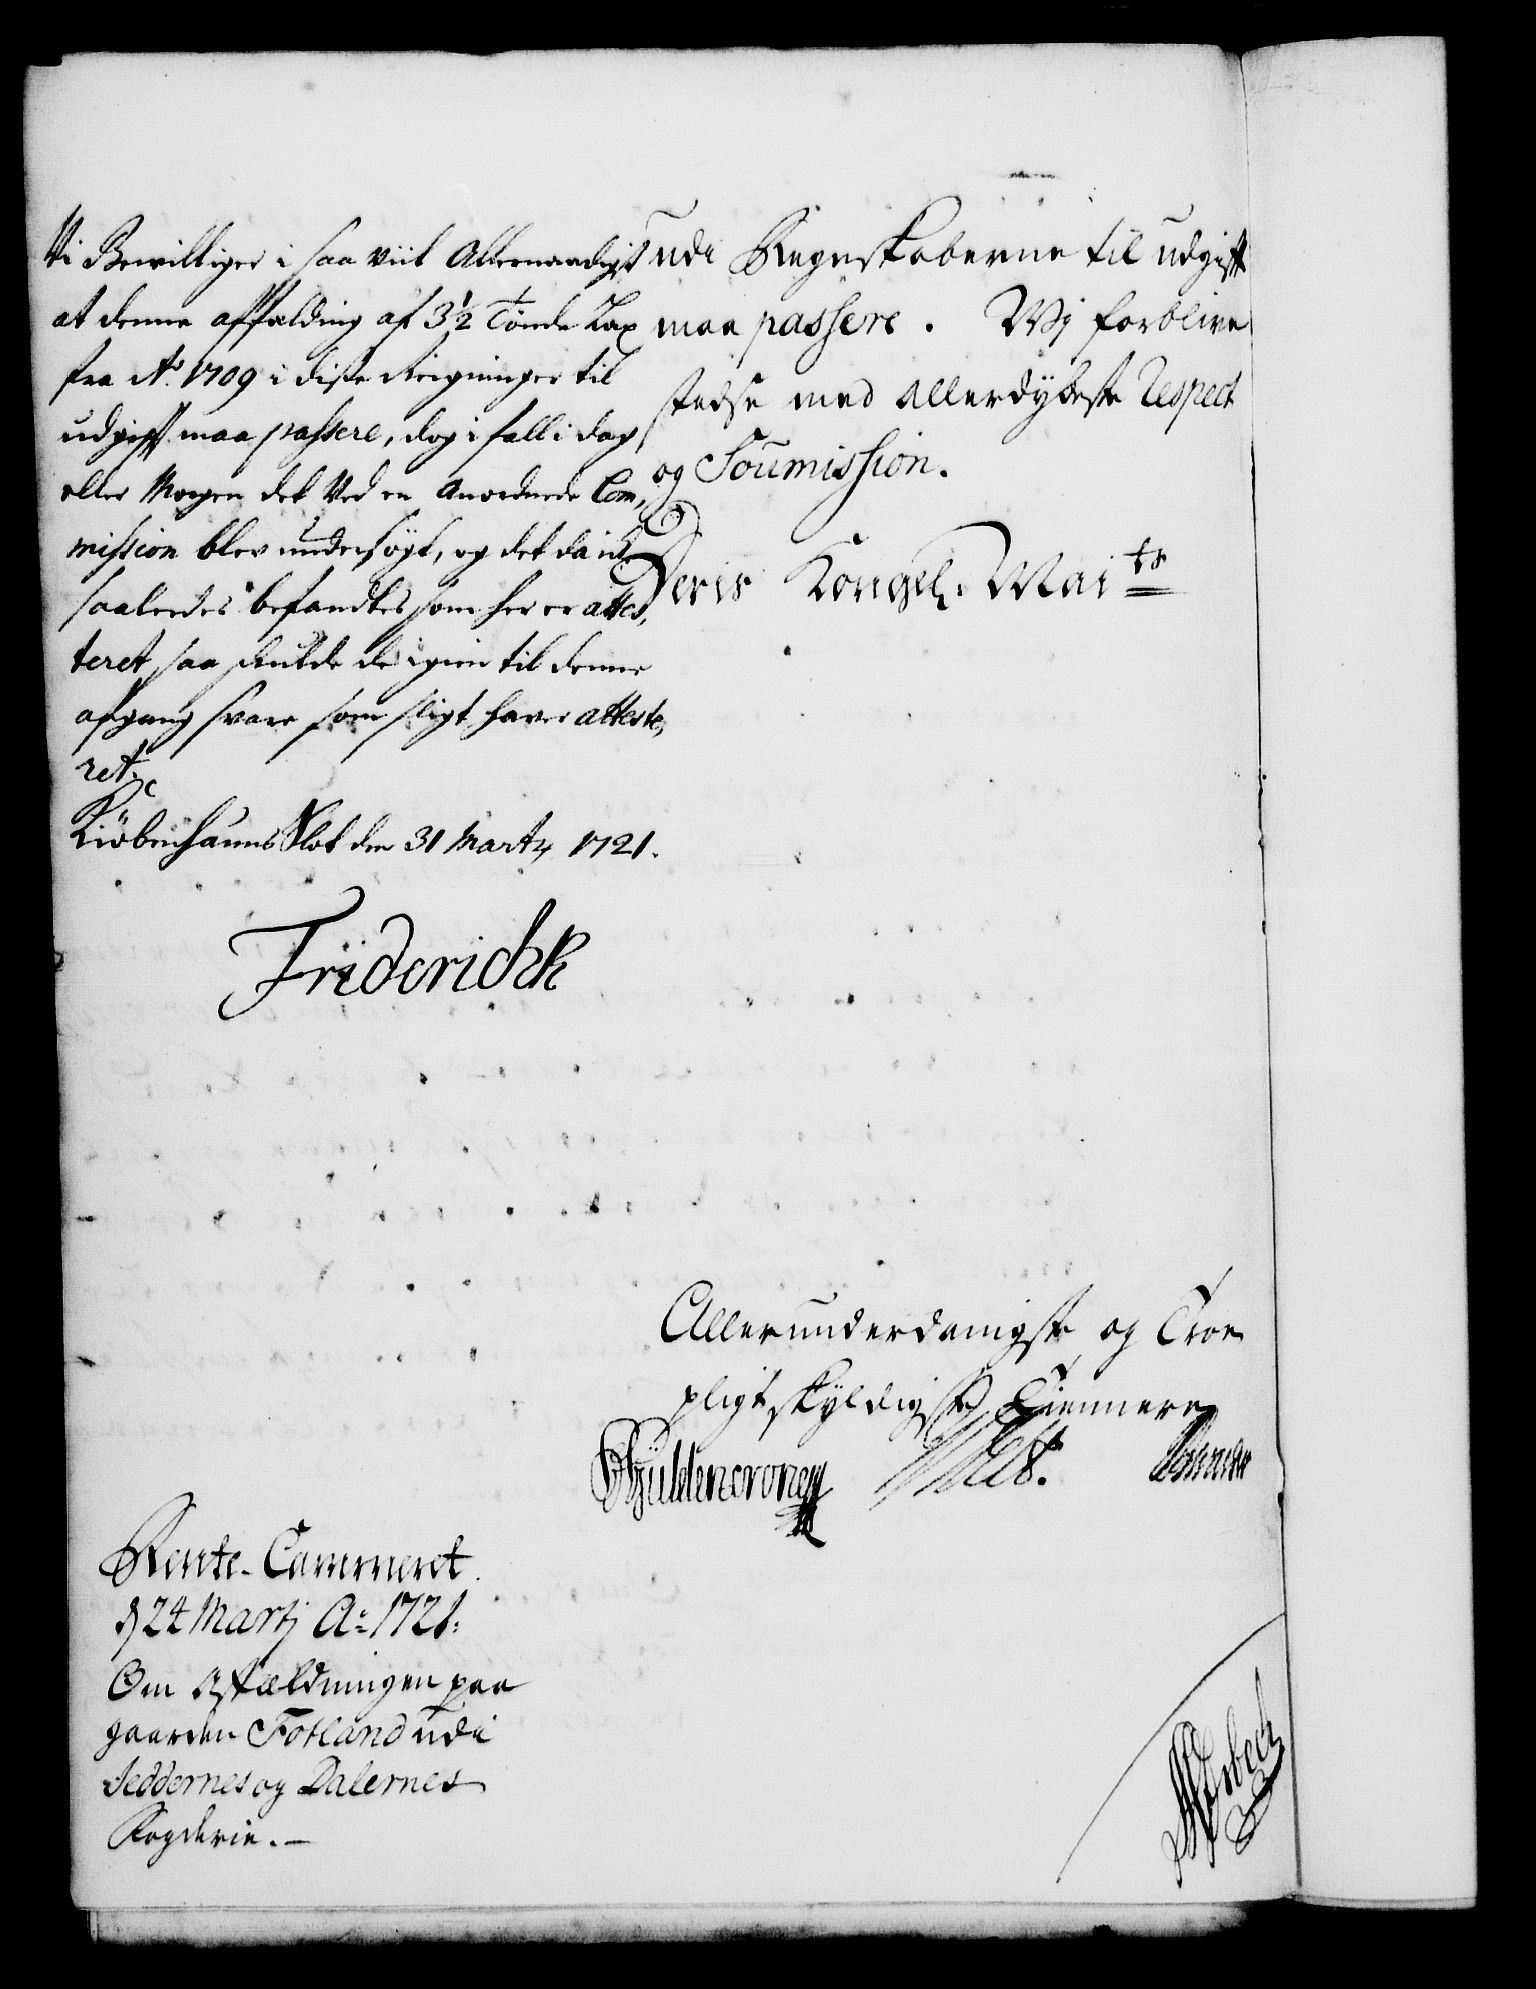 Vi Bewilliger i saa viit Allernaadigst
at denne affælding af 3½ Tönde Lax
fra Aº 1709 i disse Reigninger til
udgift maa passere, dog i fall i dag
eller Morgen det Ved en Anordnede Com,
mission blev undersögt, og det da ich
saaledes befandtes som her er attes,
teret, saa skulde de igien til denne
afgang svare som sligt haver atteste,
ret.
Kiöbenhaufns Slot den 31 Martij 1721.
Friderich R
udi Regnskaberne til udgift
maa passere. Wj forblive
stedse med allerdybeste Respect
og Soumission.
Deris Kongel. Maits
Allerunderdanigste og Troe
pligtskyldigste Tiennere
Güldencrone
Rente-Cammeret
d 24 Martj Aº 1721.
Om Affældningen paa
gaarden Fotland udi
Jeddernes og Dalernes
Fogderie.